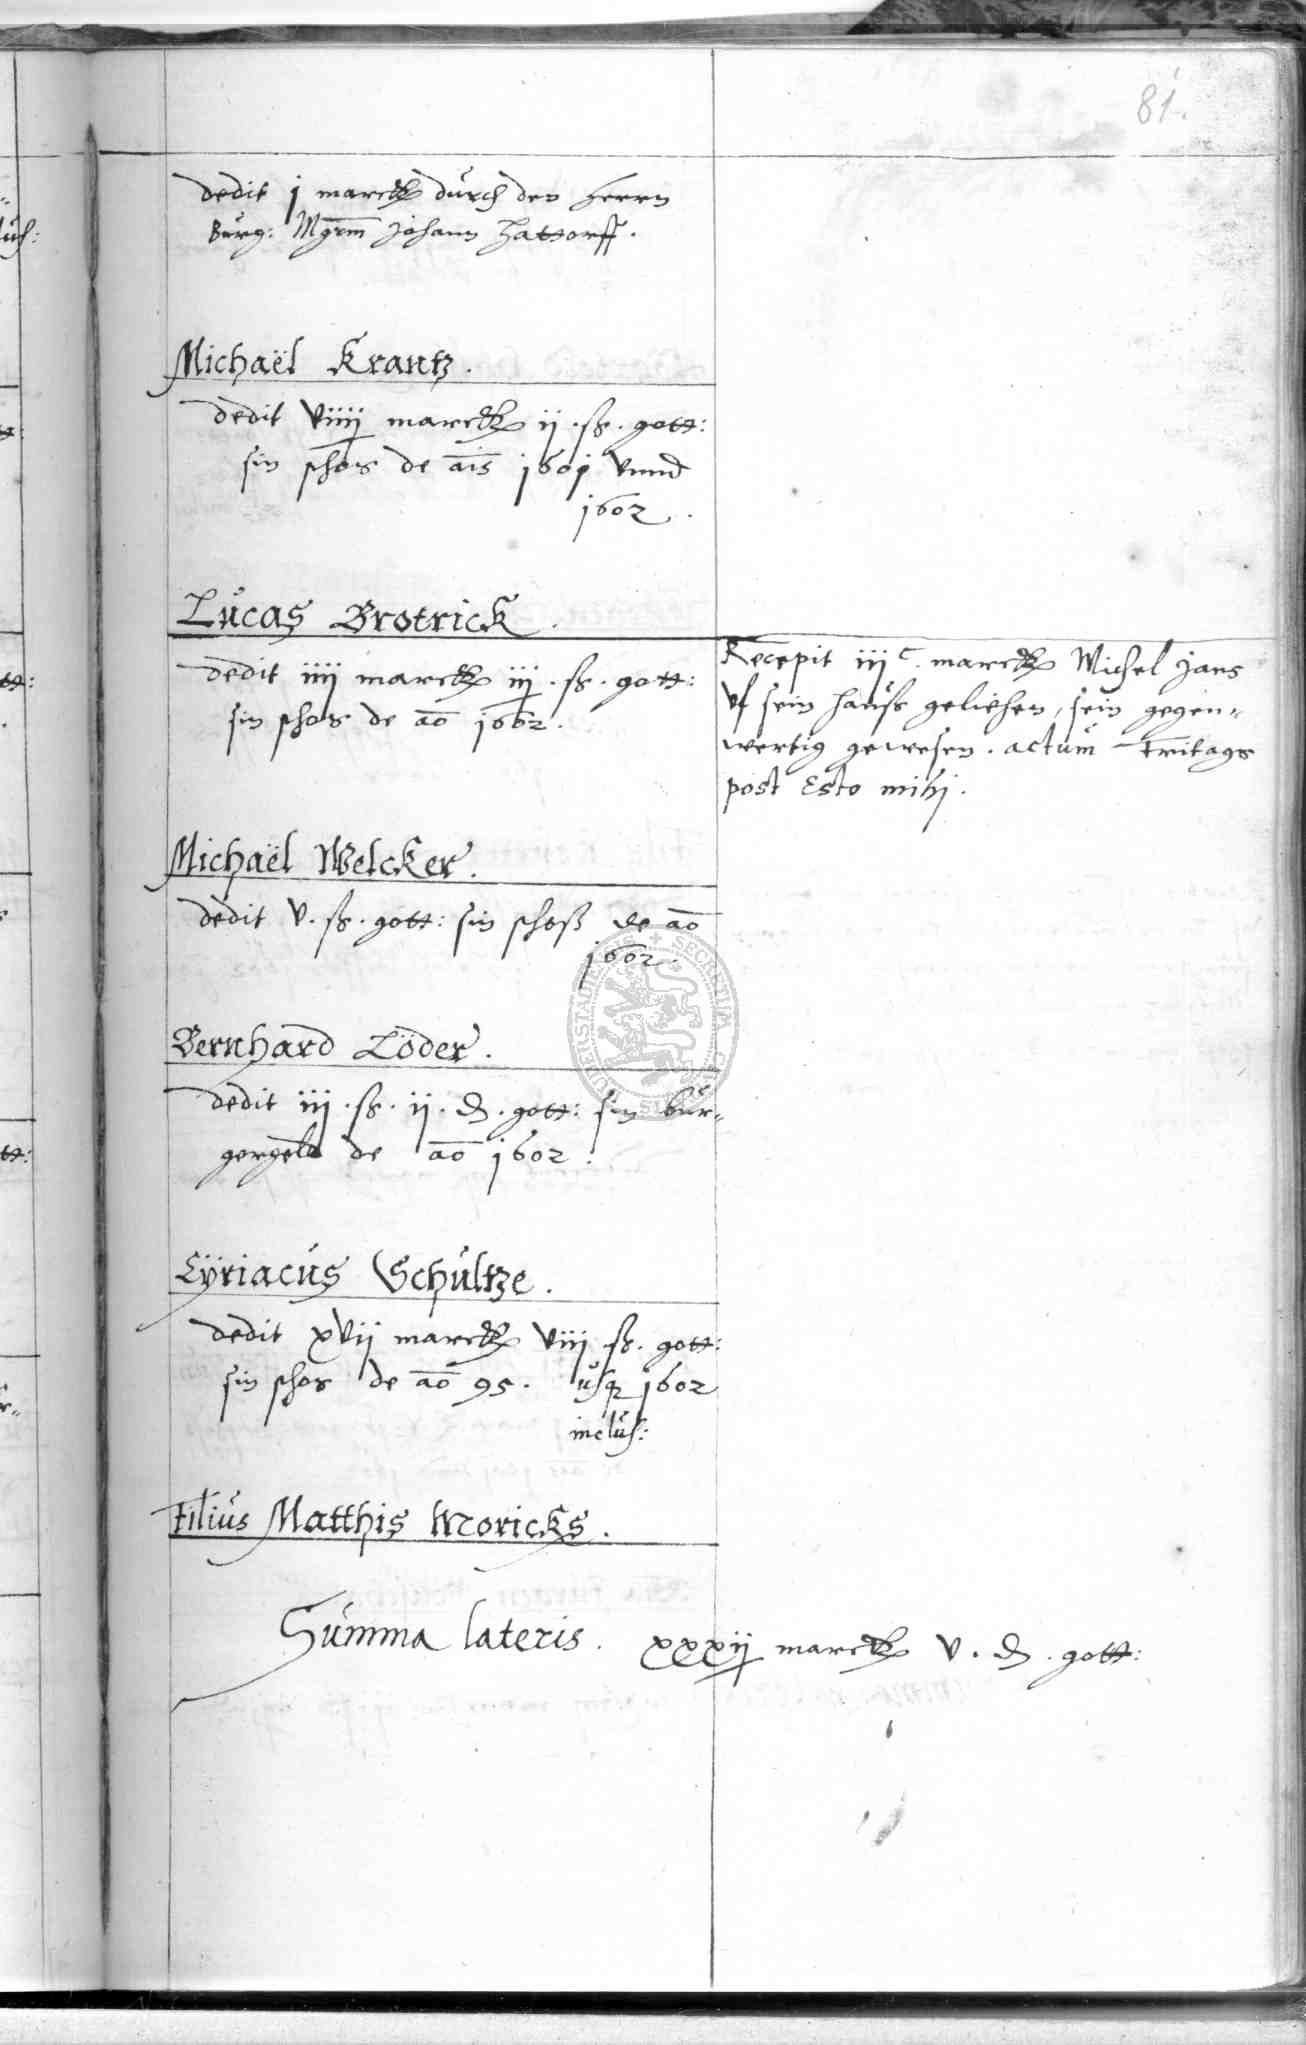 81.
dedit j marck durch den Herrn
Burg: Mgrm Johann Hattorff.
Michaël Krantz.
dedit viiij marck ij .ß. gott:
sin schos de ais 1601 vnnd
1602.
Lucas Brotrick.
dedit iiij marck iij .ß. gott:
sin schos de ao 1602.
Recepit iij C. marck Michel Jans
vf sein hauß geliehen, sein gegen„
wertig gewesen. actum Fritags
post Esto mihj.
Michaël Welcker.
dedit v. ß. gott: sin schoß de ao
1602.
Bernhard Löder.
dedit iij .ß. ij. d. gott: sin bur„
gergeld de ao 1602.
Cÿriacus Schultze.
dedit xvij marck viij ß. gott:
sin schos de ao 95. usq 1602
inclus:
Filius Matthis Moricks.
Summa lateris. xxxij marck v. d. gott: